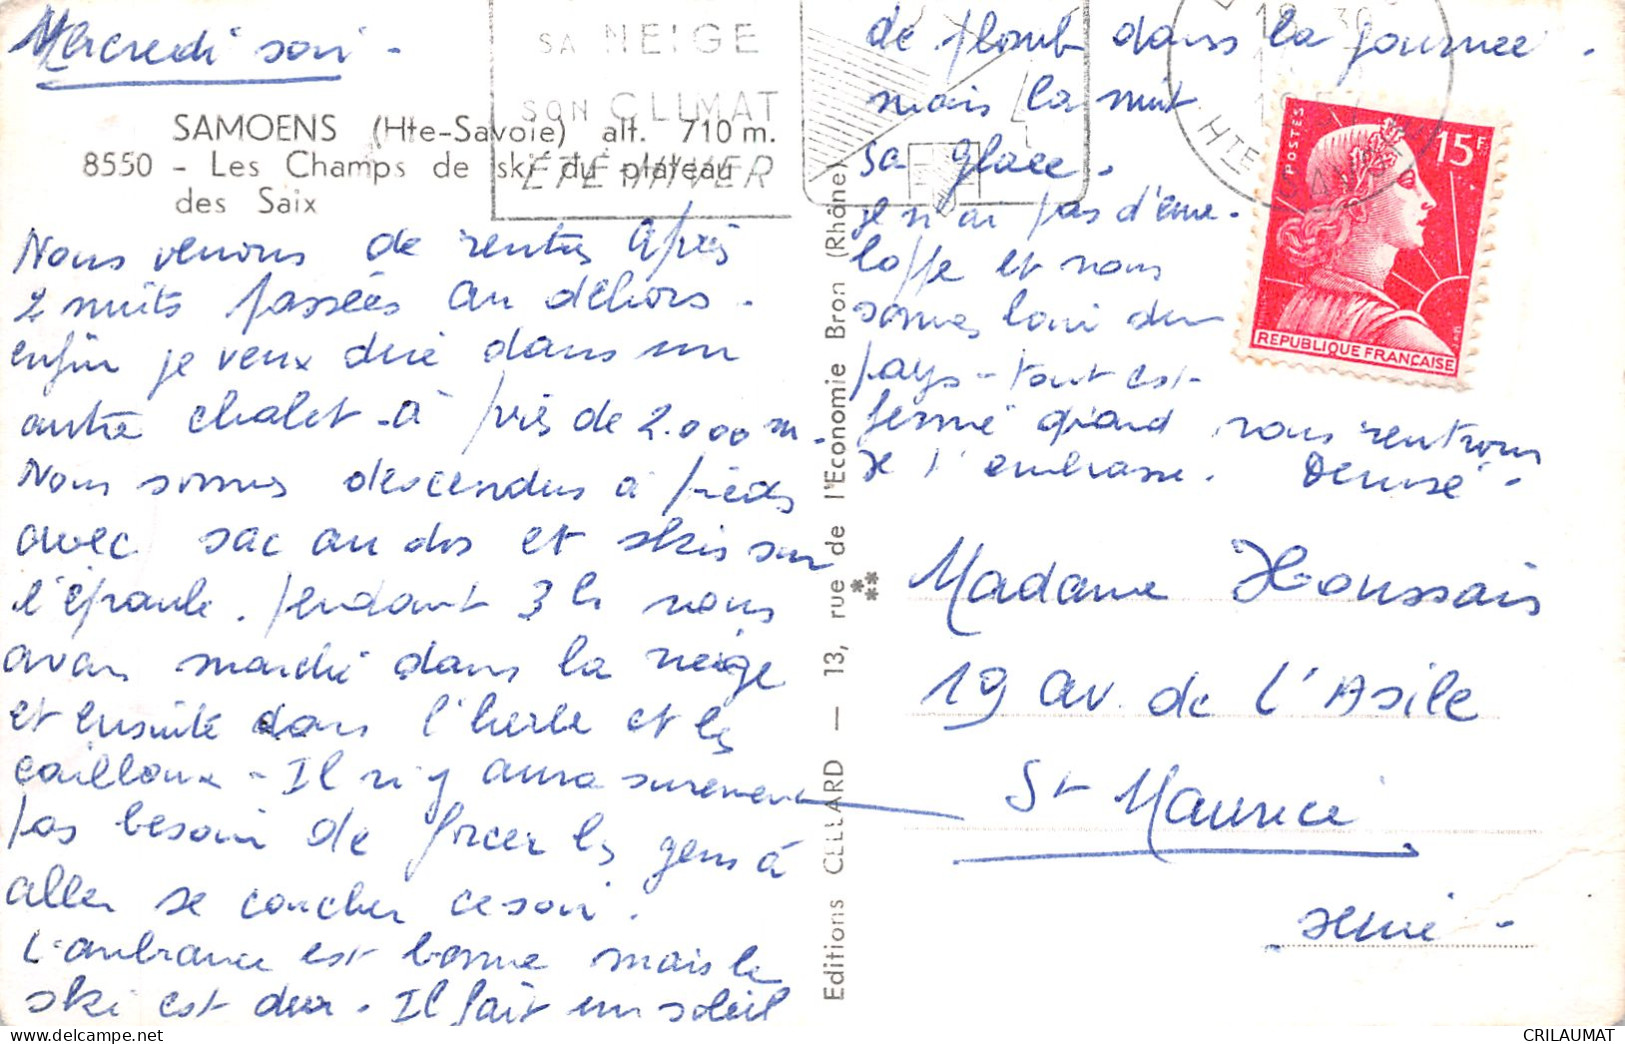 Mercredi soir -
SAMOENS (Hte-Savoie) alt. 710 m.
8550 - Les Champs de ski du plateau
des Saix
SA NEIGE
SON CLIMAT
ÉTÉ HIVER
Nous venons de rentrer Après
2 nuits passées au déhors.
enfin je veux dire dans un
autre chalet à près de 2.000 m.
Nous sommes descendus à pieds
avec sac au dos et skis sur
l'épaule. pendant 3 h nous
avons marché dans la neige
et ensuite dans l'herbe et les
cailloux - Il n'y aura surement
pas besoin de forcer les gens à
aller se coucher ce soir.
L'ambiance est bonne mais le
ski est dur. Il fait un soleil
de plomb dans la journee.
mais la nuit
sa glace.
je n'ai pas d'enve-
loppe et nous
sommes loin du
pays - tout est
fermé quand nous rentrons
Je t'embrasse. Denise.
Editions CELLARD — 13, rue de l'Economie Bron (Rhône)
18 30
HTE
POSTES
15F
REPUBLIQUE FRANCAISE
Madame Houssais
19 av. de L'Asile
St Maurice
Seine -
CRILAUMAT